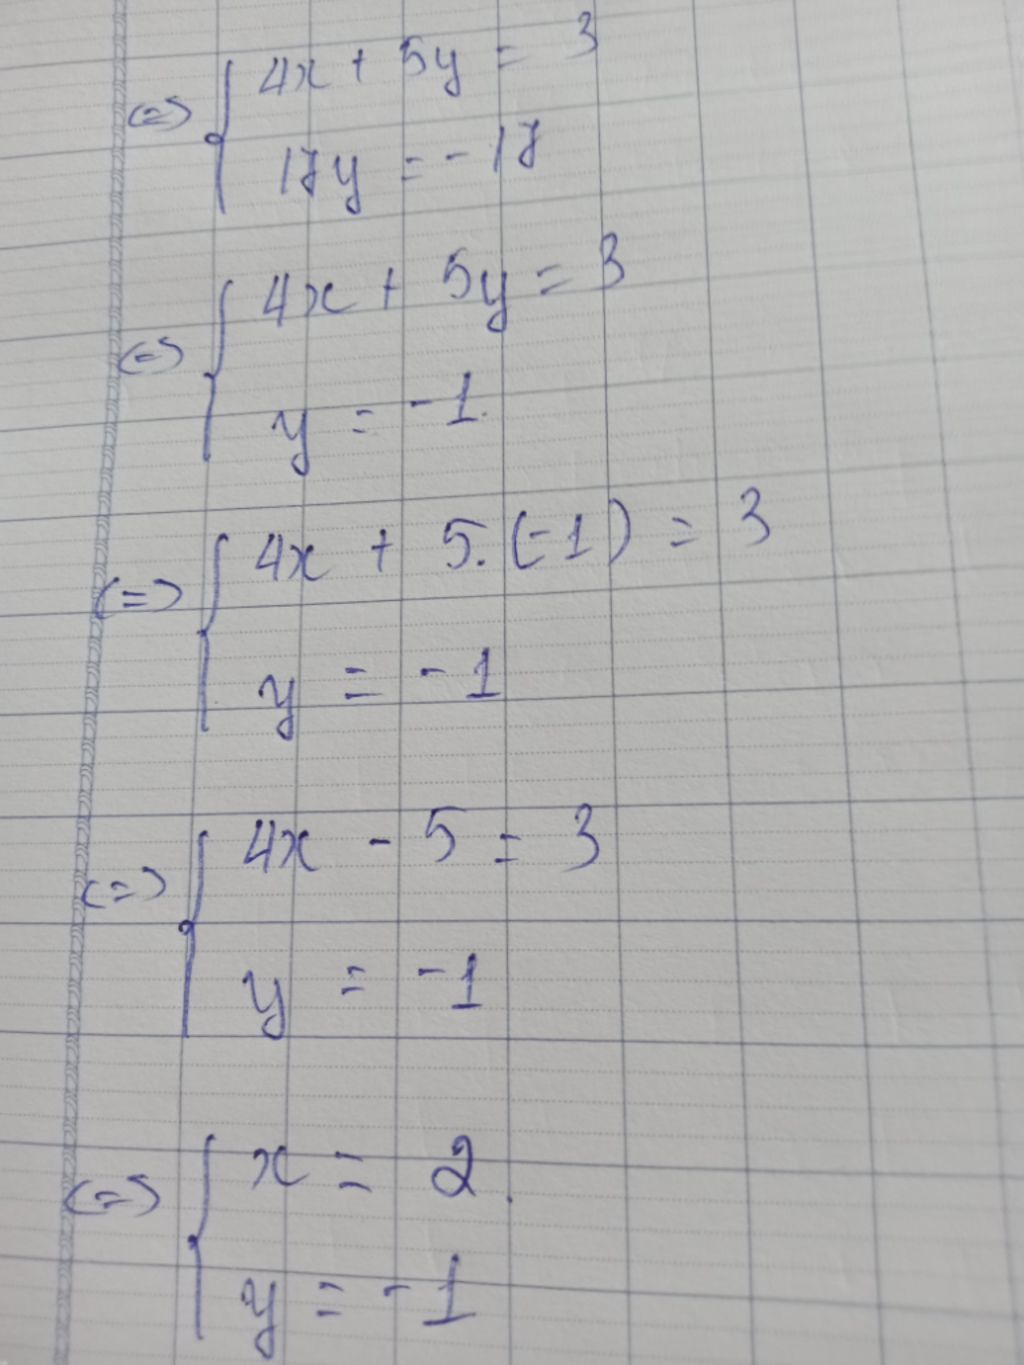 (=) { 4x + 5y = 3
17y = -17
(=) { 4x + 5y = 3
y = -1.
(=) { 4x + 5.(-1) = 3
y = -1
(=) { 4x - 5 = 3
y = -1
(=) { x = 2.
y = -1